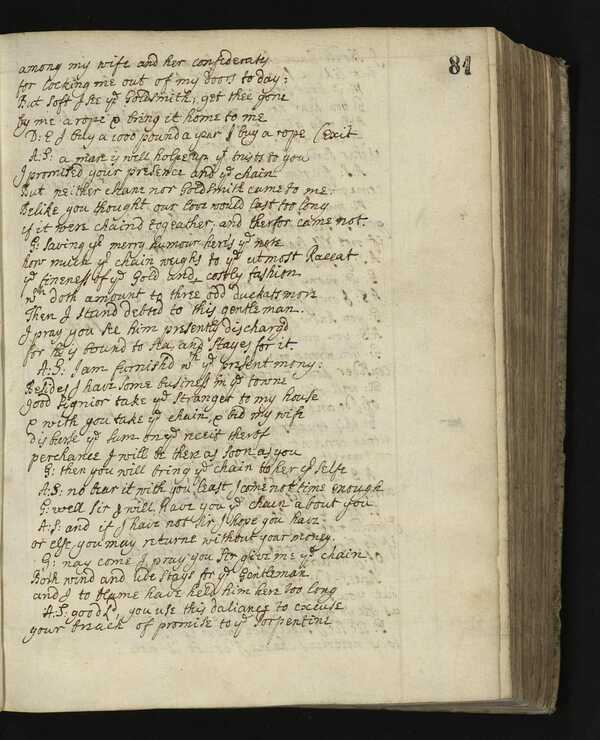 81
among my wife and her confederats
for locking me out of my doors to day:
But soft I see ye Goldsmith; get thee gone
by me a rope & bring it home to me
D: E I buy a 1000 pound a year I buy a rope (exit
A:S: a man is well holpe up yt trusts to you
I promised your presence and ye chain
But neither chane nor Goldsmith came to me:
Belike you thought our love would last too long
if it were chaind togeather, and therfor came not.
G: saving yr merry humour heris ye note
how much yr chain weighs to ye utmost Raccat
ye fineness of ye Gold and costly fashion
wch doth amount to three odd duckats more
Then I stand debted to this gentleman.
I pray you see him presently dischargd
for he is bound to sea and stayes for it
A:S: I am furnishd wth ye present mony:
Besides I have some business in ye towne
good signior take ye stranger to my house
& with you take ye chain & bid my wife
disburse ye sum on ye receit therof
perchance I will be there as soon as you
G: then you will bring ye chain to her yr selfe
A:S: no bear it with you least I come not time enough
G: well sir I will have you ye chain about you
A:S: and if I have not sir, I hope you have
or else you may returne without your money.
G: nay come I pray you sir give me ye chain
Both wind and tide stays for ye Gentleman
and I to blame have held him here too long
A:S: good Ld, you use this daliance to excuse
your breach of promise to ye Porpentine